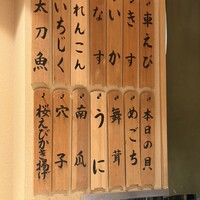 車えび
きす
いか
なす
れんこん
いちじく
太刀魚
本日の貝
めごち
舞茸
うに
南瓜
穴子
桜えびかき揚げ